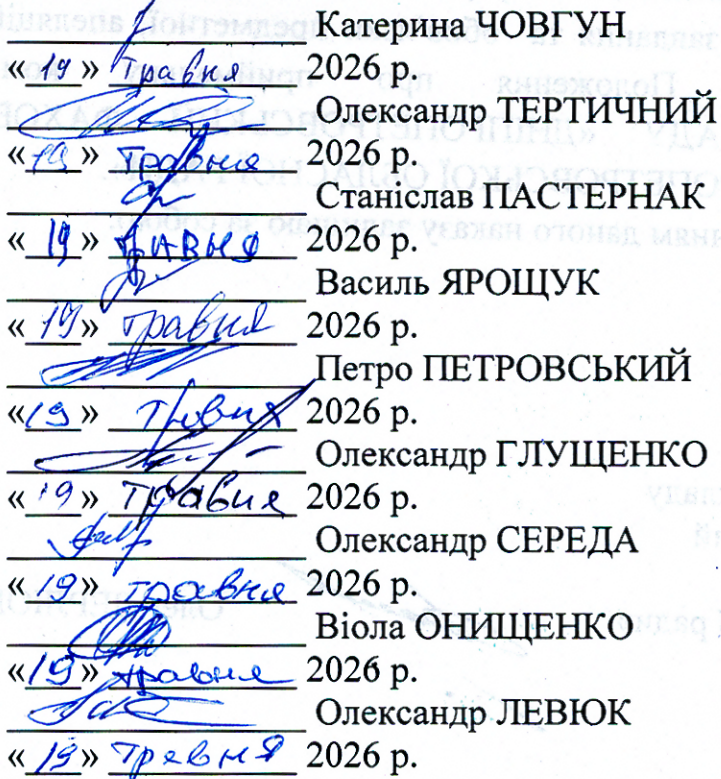 Катерина ЧОВГУН
«19» травня 2026 р.
Олександр ТЕРТИЧНИЙ
«19» травня 2026 р.
Станіслав ПАСТЕРНАК
«19» травня 2026 р.
Василь ЯРОЩУК
«19» травня 2026 р.
Петро ПЕТРОВСЬКИЙ
«19» травня 2026 р.
Олександр ГЛУЩЕНКО
«19» травня 2026 р.
Олександр СЕРЕДА
«19» травня 2026 р.
Віола ОНИЩЕНКО
«19» травня 2026 р.
Олександр ЛЕВЮК
«19» травня 2026 р.